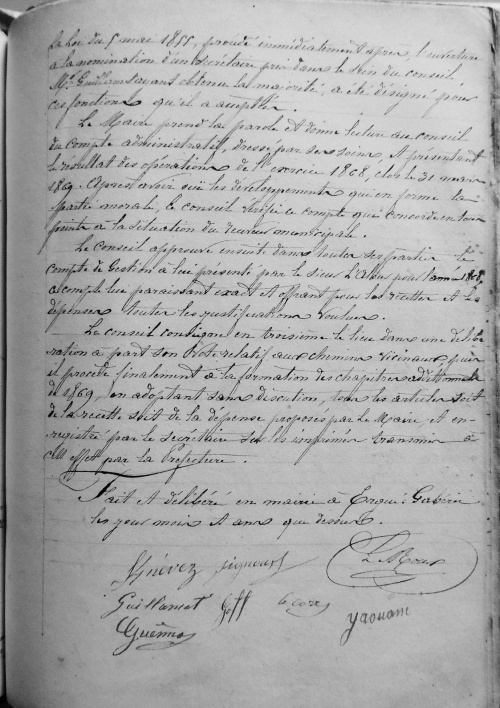 la loi du 5 mai 1855, procède immédiatement après, l'ouverture
à la nomination d'un secrétaire pris dans le sein du conseil
Mr Guillamet ayant obtenu la majorité, a été désigné pour
ces fonctions qu'il a acceptées.
Le Maire prend la parole et donne lecture au conseil
du compte administratif, dressé par ses soins, et présentant
le résultat des opérations de l'exercice 1868, clos le 31 mars
1869. Après avoir suivi les développements qui en forme la
partie morale, le conseil vérifie ce compte qui concorde en tous
points à la situation du receveur municipal.
Le conseil approuve ensuite dans toutes ses parties le
compte de Gestion à lui présenté par le sieur pour l'année 1868,
ce compte lui paraissant exact et offrant pour les recettes et les
dépenses toutes les justifications voulues.
Le conseil consigne en troisième lieu dans une délibé
ration à part son vote relatif aux chemins vicinaux, puis
il procède finalement à la formation des chapitres additionnels
de 1869, en adoptant sans discution, tous les articles soit
de la recette soit de la dépense proposés par le Maire et en-
registrés par le secrétaire sur les imprimés transmis à
cet effet par la Préfecture.
Fait et délibéré en mairie à Ergué-Gabéric
les jour mois et ans que dessus.
Guillamet Goff yaouanc